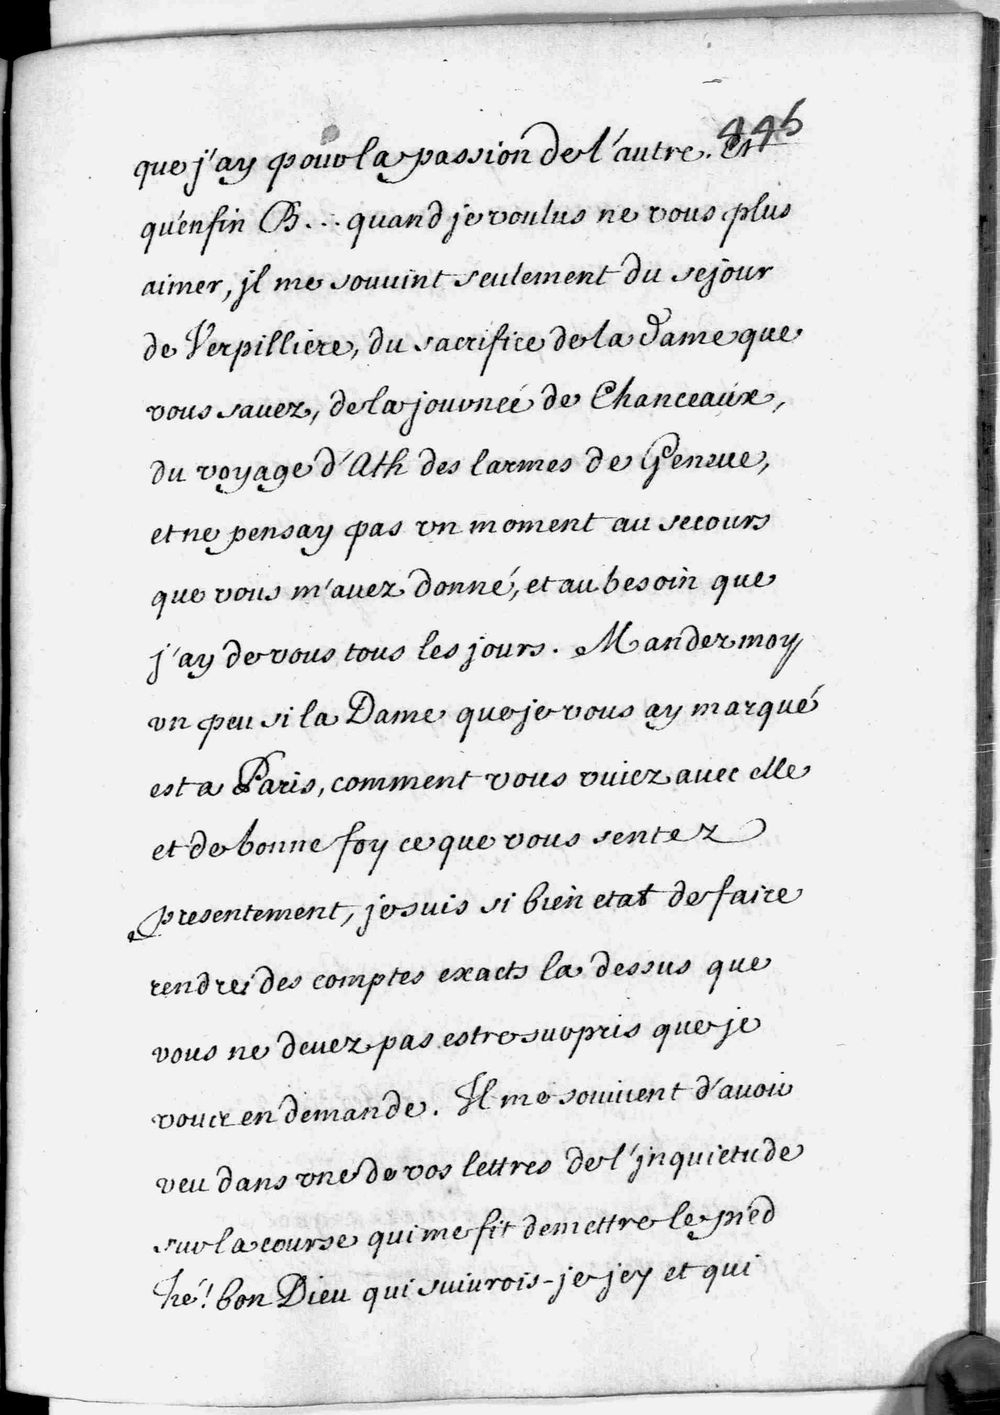 445
que j'ay pour la passion de l'autre. Et
qu'enfin B... quand je voulus ne vous plus
aimer, jl me souvint seulement du sejour
de Verpilliere, du sacrifice de la Dame que
vous sauez, de la journéé de Chanceaux,
du voyage d'Ath des larmes de Geneue,
et ne pensay pas vn moment au secours
que vous m'auez donné, et au besoin que
j'ay de vous tous les jours. Mandez moy
vn peu si la Dame que je vous ay marqué
est a Paris, comment vous viuez auec elle
et de bonne foy ce que vous sentez
presentement, je suis si bien etat de faire
rendre des comptes exacts la dessus que
vous ne deuez pas estre surpris que je
vous en demande. Il me souuient d'auoir
veu dans vne de vos lettres de l'jnquietude
sur la course qui me fit demettre le pied
hé! bon Dieu qui suiurois-je jcy et qui